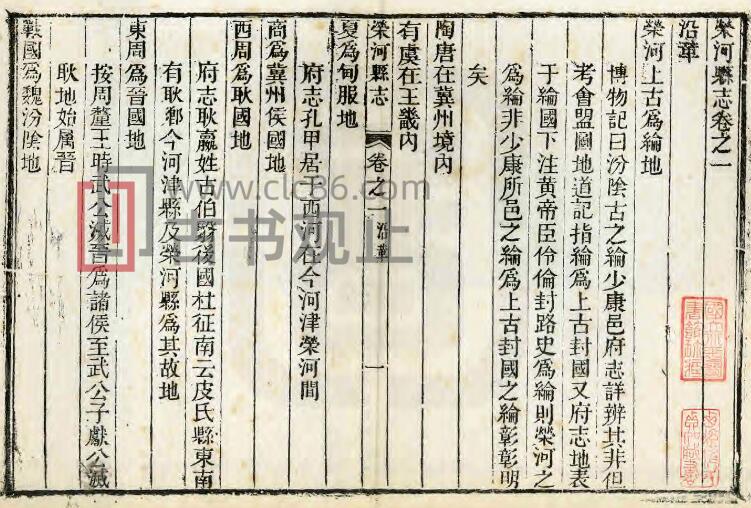 榮河縣志卷之一
沿革
榮河上古爲綸地
博物記曰汾陰古之綸少康邑府志詳辨其非但
考會盟圖地道記指綸爲上古封國又府志地表
于綸國下注黃帝臣伶倫封路史爲綸則榮河之
爲綸非少康所邑之綸爲上古封國之綸彰彰明
矣
陶唐在冀州境內
有虞在王畿內
榮河縣志 卷之一 沿革 一
夏爲甸服地
府志孔甲居于西河在今河津榮河間
商爲冀州侯國地
西周爲耿國地
府志耿嬴姓古伯翳後國杜征南云皮氏縣東南
有耿鄉今河津縣及榮河縣爲其故地
東周爲晉國地
按周釐王時武公滅晉爲諸侯至武公子獻公滅
耿地始属晉
戰國爲魏汾陰地
www.clc86.com
古书观止